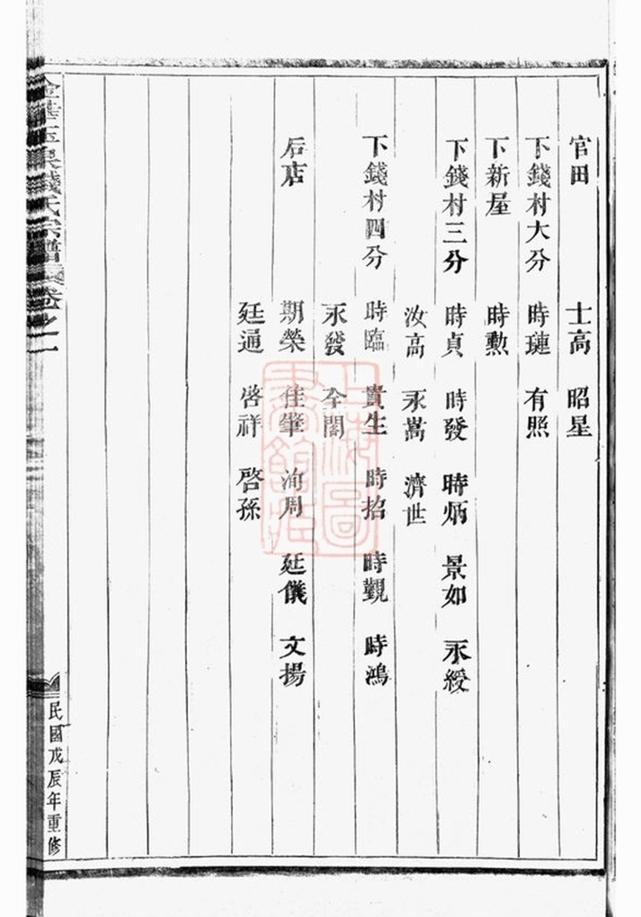 官田　士高　昭星
下錢村大分　時璉　有照
下新屋　時勲
下錢村三分　時貞　時發　時炳　景如　永綬
汝高　永嵩　濟世
下錢村四分　時臨　貴生　時招　時觀　時鴻
永發　全閣
后店　期榮　佳肇　洵周　廷儀　文揚
廷通　啓祥　啓孫
錢氏宗譜　卷之二
民國戊辰年重修
上海圖書館藏